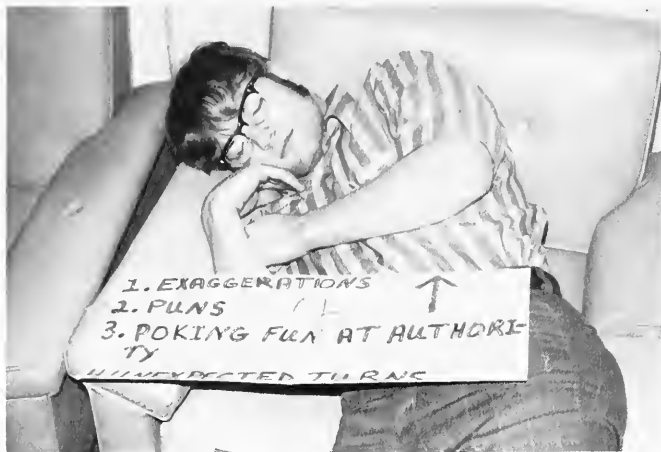 1. EXAGGERATIONS
2. PUNS
3. POKING FUN AT AUTHORI-
TY
UNEXPECTED TURNS